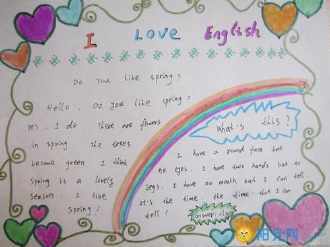 I Love English
Do you like spring?
Hello. Do you like spring?
Yes. I do. There are flowers
in spring the trees
become green I think
spring is a lovely
season I like
spring!
What's this?
I have a round face but
no eyes. I have two hands but no
legs. I have no mouth but I can tell
the time the time. but I can
tell!
Answer: